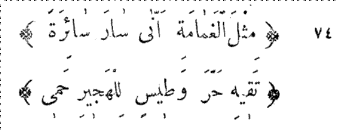 ٧٤ ﴿ مِثْلَ الْغَمَامَةِ أَنَّى سَارَ سَائِرَةً ﴾
﴿ تَقِيهِ حَرَّ وَطِيسٍ لِلْهَجِيرِ حَمِي ﴾